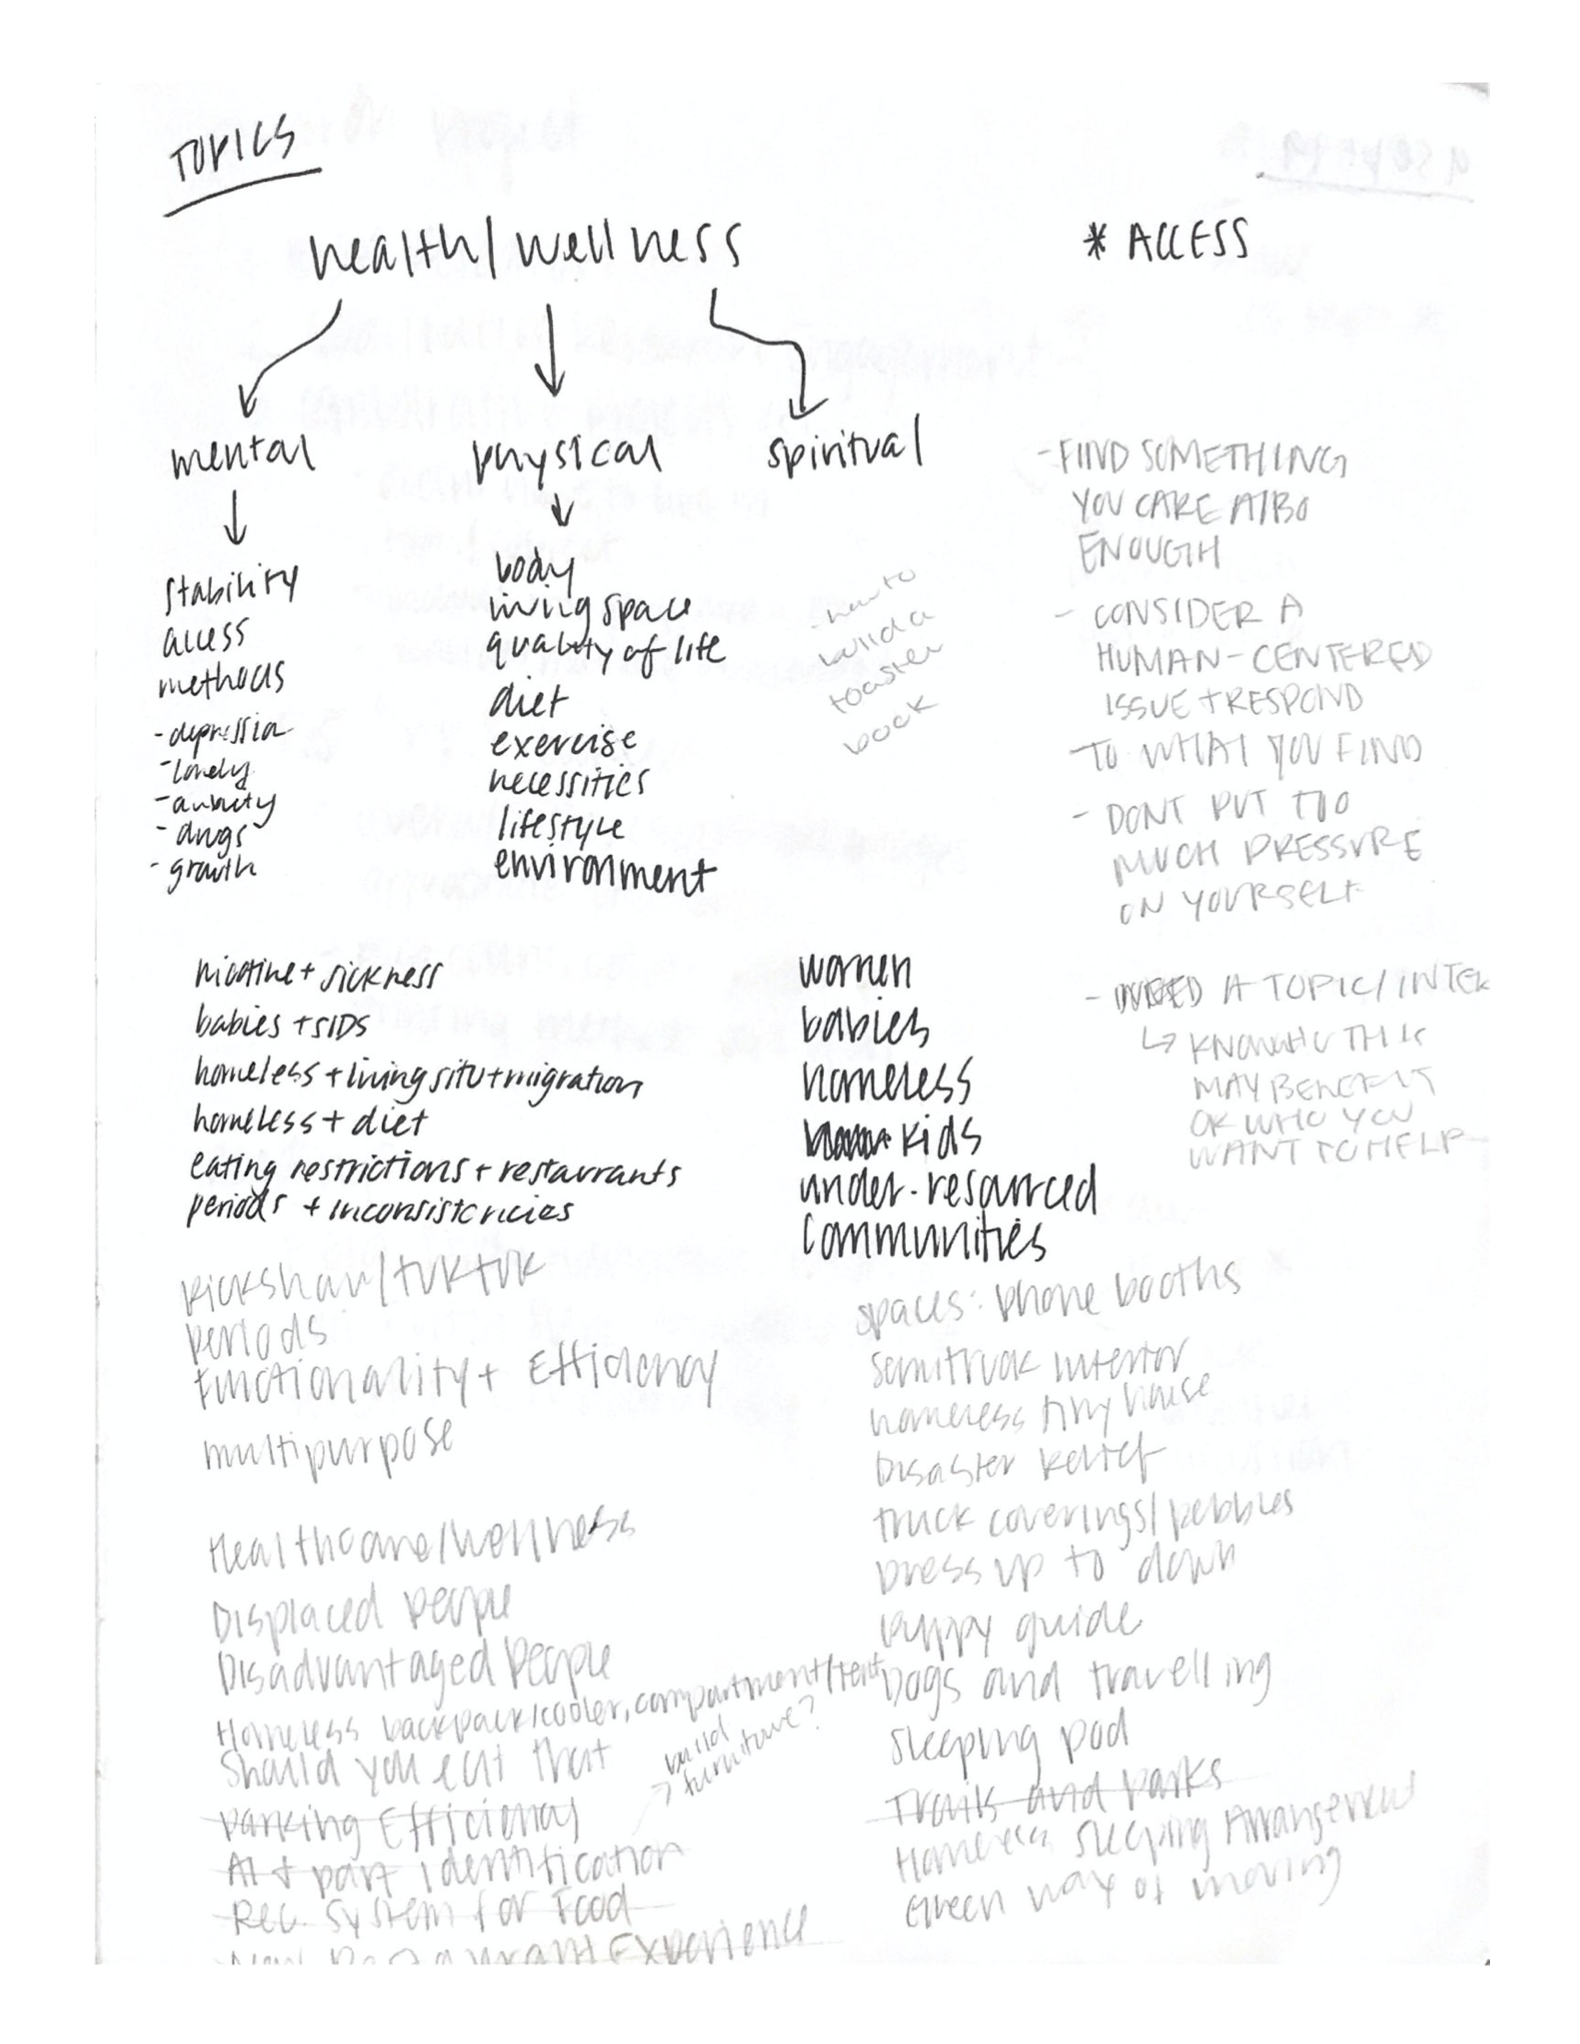 TOPICS
health/wellness
* ACCESS
mental
physical
spiritual
stability
access
methods
- depression
- lonely
- anxiety
- drugs
- growth
body
living space
quality of life
diet
exercise
necessities
lifestyle
environment
- how to
build a
toaster
book
- FIND SOMETHING
YOU CARE ABO
ENOUGH
- CONSIDER A
HUMAN-CENTERED
ISSUE + RESPOND
TO WHAT YOU FIND
- DONT PUT TOO
MUCH PRESSURE
ON YOURSELF
- NEED A TOPIC/INTER
↳ KNOW WHO THIS
MAY BENEFIT
OR WHO YOU
WANT TO HELP
nicotine + sickness
babies + SIDS
homeless + living situ + migration
homeless + diet
eating restrictions + restaurants
periods + inconsistencies
women
babies
homeless
kids
under-resourced
communities
Rickshaw/tuktuk
periods
Functionality + Efficiency
multipurpose
Healthcare/wellness
Displaced people
Disadvantaged People
Homeless backpack/cooler, compartment/tent
Should you eat that
Parking Efficiency
AI + part identification
Rec. System for Food
Experience
→ build
furniture?
spaces: phone booths
semitruck interior
homeless tiny house
Disaster Relief
truck coverings/pebbles
Dress up to down
puppy guide
Dogs and travelling
sleeping pod
Trails and parks
Homeless Sleeping Arrangement
Green way of moving